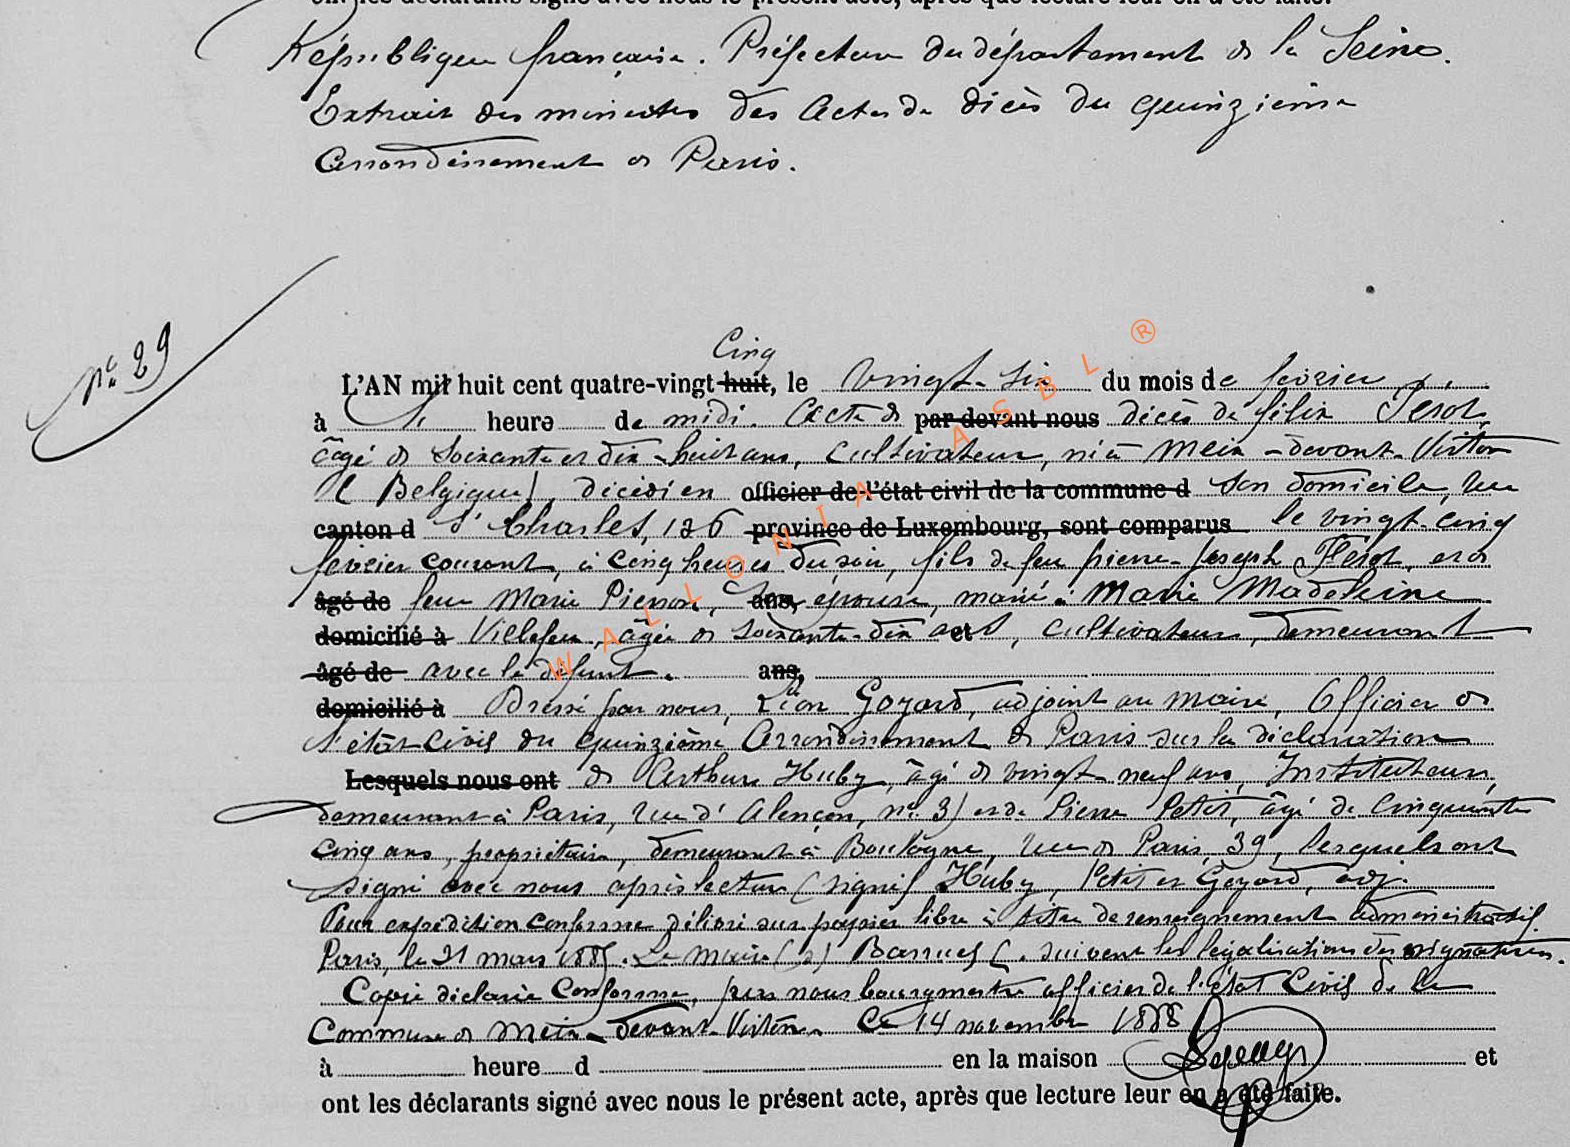 ont les déclarants signé avec nous le présent acte, après que lecture leur en a été faite.
République française. Préfecture du département de la Seine.
Extrait des minutes des Actes de décès du quinzième
Arrondissement de Paris.
N° 29
Cinq
L'AN mil huit cent quatre-vingt-huit, le vingt-six du mois de février
à heure de midi. Acte de par devant nous décès de félix
âgé de soixante et dix-huit ans, cultivateur, né à Meix-devant-Virton
(Belgique), décédé en officier de l'état civil de la commune d son domicile, rue
canton d St Charles, 126 province de Luxembourg, sont comparus le vingt-cinq
février courant, à cinq heures du soir, fils de feu pierre-Joseph et de
âgé de feue Marie Pierson, ans, épouse, marié à Marie Madeleine
domicilié à âgée de soixante-dix et cultivateur, demeurant
âgé de avec le défunt. ans,
domicilié à Dressé par nous, Léon Goyard, adjoint au maire, Officier de
l'état Civil du quinzième Arrondissement de Paris sur la déclaration
Lesquels nous ont de Arthur Huby, âgé de vingt neuf ans, Instituteur,
demeurant à Paris, rue d'Alençon, n° 3) et de Pierre Petit, âgé de cinquante
cinq ans, propriétaire, demeurant à Boulogne, rue de Paris, 39, lesquels ont
signé avec nous après lecture (signé) Huby, Petit et Goyard, adj.
Pour expédition conforme délivré sur papier libre à titre de renseignement administratif.
Paris, le 21 mars 1885. Le Maire (s) suivent les légalisations des signatures.
Copie déclarée Conforme, par nous bourgmestre officier de l'état Civil de la
Commune de Meix-devant-Virton. Ce 14 novembre 1888
à heure d en la maison et
ont les déclarants signé avec nous le présent acte, après que lecture leur en a été faite.
WALLONIA ASBL ®